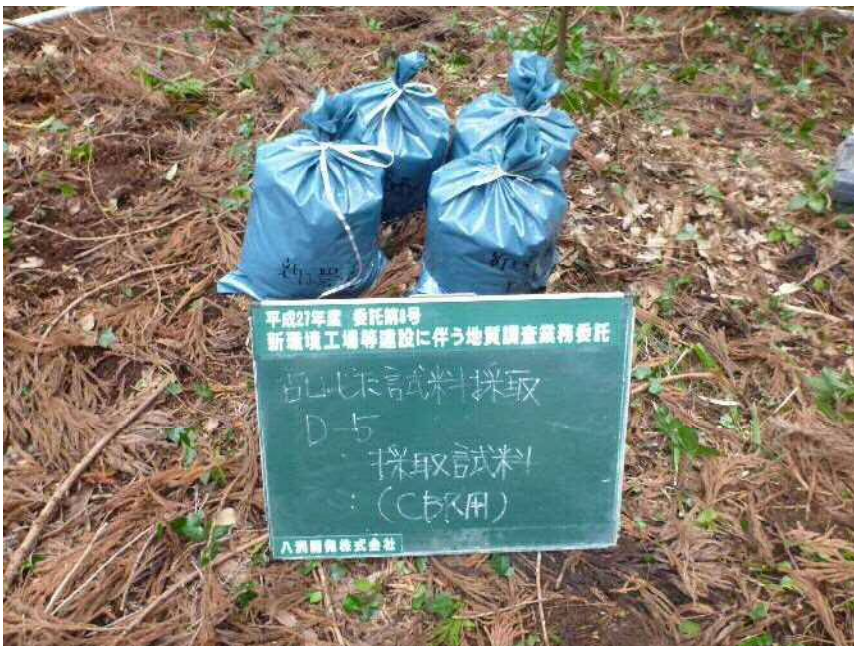 平成27年度 委託第8号
新環境工場等建設に伴う地質調査業務委託
乱した試料採取
D-5
採取試料
(CBR用)
八洲開発株式会社